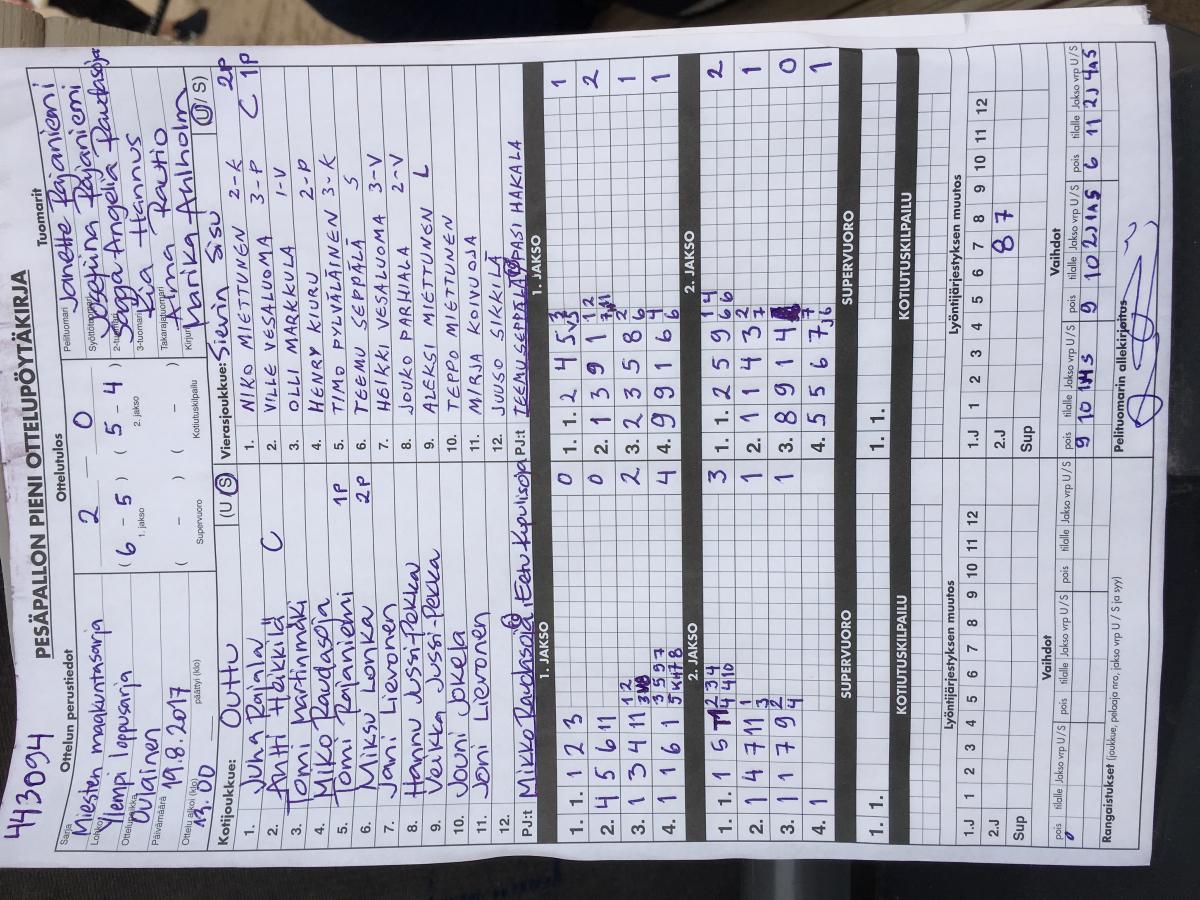 443094
PESÄPALLON PIENI OTTELUPÖYTÄKIRJA
Ottelun perustiedot
Sarja Miesten maakuntasarja
Lohko Ylempi loppusarja
Ottelupaikka Oulainen
Päivämäärä 19.8.2017
Ottelu alkoi (klo) 13.00 päättyi (klo)
Ottelutulos
2 – 0
( 6 – 5 ) ( 5 – 4 )
1. jakso 2. jakso
( – ) ( – )
Supervuoro Kotiutuskilpailu
Tuomarit
Pelituomari Janette Pajaniemi
Syöttötuomari Josefiina Pajaniemi
2-tuomari Angelia Raudasoja
3-tuomari Eia Hannus
Takarajatuomari Alma Rautio
Kirjuri Marika Ahlholm
Kotijoukkue: OuHu (U / S)
1. Juha Rajala
2. Antti Heikkilä C
3. Tomi Martinmäki
4. Miko Raudasoja
5. Tomi Pajaniemi 1P
6. Miksu Lonka 2P
7. Jani Lievonen
8. Hannu Jussi-Pekka
9. Veikka Jussi-Pekka
10. Jouni Jokela
11. Joni Lievonen
12.
PJ:t Mikko Raudasoja, Eetu Kipulisoja
Vierasjoukkue: Sievin Sisu (U / S)
1. NIKO MIETTUNEN 2-K 2P
2. VILLE VESALUOMA 3-P C 1P
3. OLLI MARKKULA 1-V
4. HENRY KIURU 2-P
5. TIMO PYLVÄLÄINEN 3-K
6. TEEMU SEPPÄLÄ S
7. HEIKKI VESALUOMA 3-V
8. JOUKO PARHIALA 2-V
9. ALEKSI MIETTUNEN L
10. TEPPO MIETTUNEN
11. MIRJA KOIVUOJA
12. JUUSO SIKKILÄ
PJ:t TEEMU SEPPÄLÄ, PASI HAKALA
1. JAKSO
1. 1. 1 2 3 0
2. 4 5 6 11 0
3. 1 3 4 11 2
4. 1 1 6 1 4
2. JAKSO
1. 1. 1 5 3
2. 1 4 7 11 1
3. 1 1 7 9 1
4. 1
SUPERVUORO
1. 1.
KOTIUTUSKILPAILU
1. JAKSO
1. 1. 2 4 5 1
2. 1 3 9 1 2
3. 2 3 5 8 1
4. 9 9 1 6 1
2. JAKSO
1. 1. 2 5 9 2
2. 1 1 4 3 1
3. 8 9 1 4 0
4. 5 5 6 7 1
SUPERVUORO
1. 1.
KOTIUTUSKILPAILU
Lyöntijärjestyksen muutos
1.J 1 2 3 4 5 6 7 8 9 10 11 12
2.J
Sup
Vaihdot
pois tilalle Jakso vrp U / S pois tilalle Jakso vrp U / S pois tilalle Jakso vrp U / S
Lyöntijärjestyksen muutos
1.J 1 2 3 4 5 6 7 8 9 10 11 12
2.J 8 7
Sup
Vaihdot
pois tilalle Jakso vrp U / S pois tilalle Jakso vrp U / S pois tilalle Jakso vrp U / S
9 10 9 10 2J1AS 6 11 2J4AS
Rangaistukset (joukkue, pelaaja nro, jakso vrp U / S ja syy)
Pelituomarin allekirjoitus